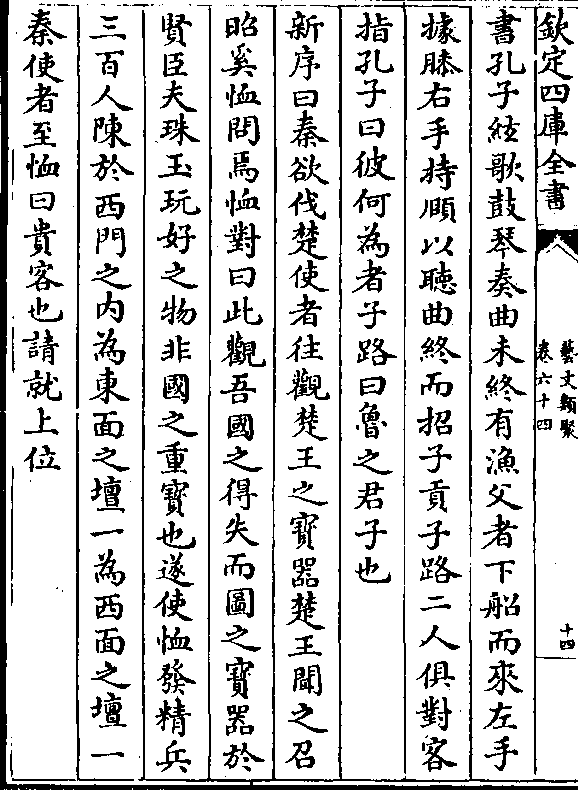 欽定四庫全書
藝文類聚
卷六十四
十四
書孔子絃歌鼓琴奏曲未終有漁父者下船而來左手
據膝右手持頤以聽曲終而招子貢子路二人俱對客
指孔子曰彼何為者子路曰魯之君子也
新序曰秦欲伐楚使者往觀楚王之寳器楚王聞之召
昭奚恤問焉恤對曰此觀吾國之得失而圖之寳器於
賢臣夫珠玉玩好之物非國之重寳也遂使恤發精兵
三百人陳於西門之内為東面之壇一為西面之壇一
秦使者至恤曰貴客也請就上位